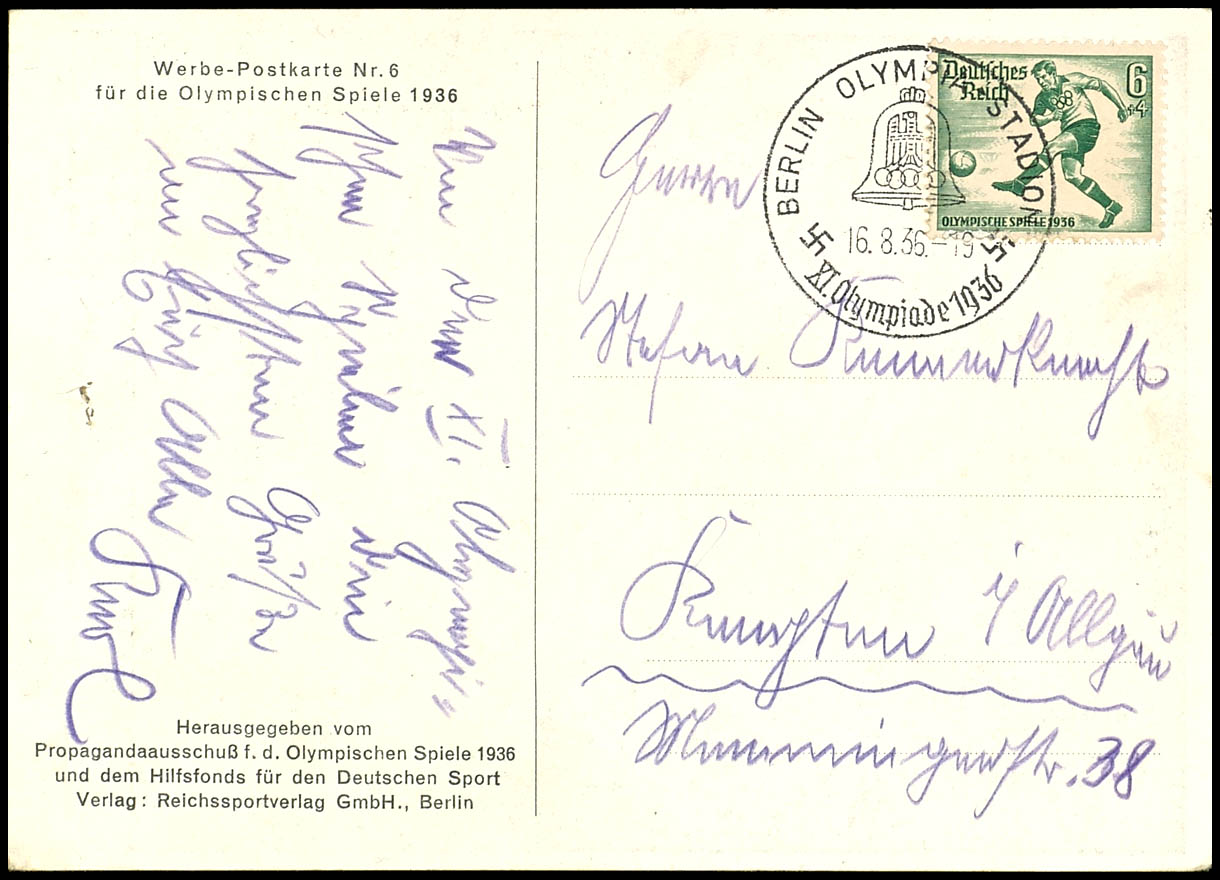 Werbe-Postkarte Nr. 6
für die Olympischen Spiele 1936
XI. Olympia
herzlichsten Grüße
Allen
Herausgegeben vom
Propagandaausschuß f. d. Olympischen Spiele 1936
und dem Hilfsfonds für den Deutschen Sport
Verlag: Reichssportverlag GmbH., Berlin
BERLIN OLYMPIA-STADION
16.8.36.-19
XI. Olympiade 1936
Deutsches
Reich
6
+4
OLYMPISCHE SPIELE 1936
Herrn
Stefan
Kempten i/ Allgäu
Memmingerstr. 38